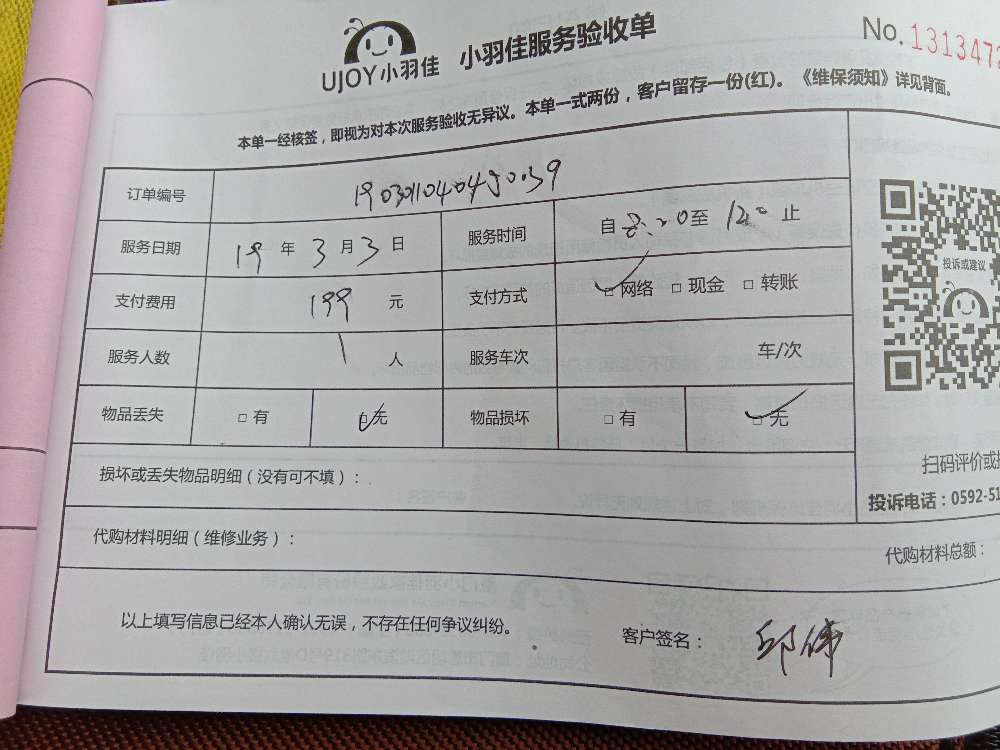 UJOY小羽佳 小羽佳服务验收单 No.131347
本单一经核签，即视为对本次服务验收无异议。本单一式两份，客户留存一份(红)。《维保须知》详见背面。
订单编号 1903011040450039
服务日期 19 年 3 月 3 日 服务时间 自 至 止
支付费用 199 元 支付方式 □网络 □现金 □转账
服务人数 1 人 服务车次 车/次
物品丢失 □有 □无 物品损坏 □有 □无
损坏或丢失物品明细（没有可不填）：
代购材料明细（维修业务）：
代购材料总额：
投诉或建议
扫码评价或
投诉电话：0592-51
以上填写信息已经本人确认无误，不存在任何争议纠纷。
客户签名：邱伟